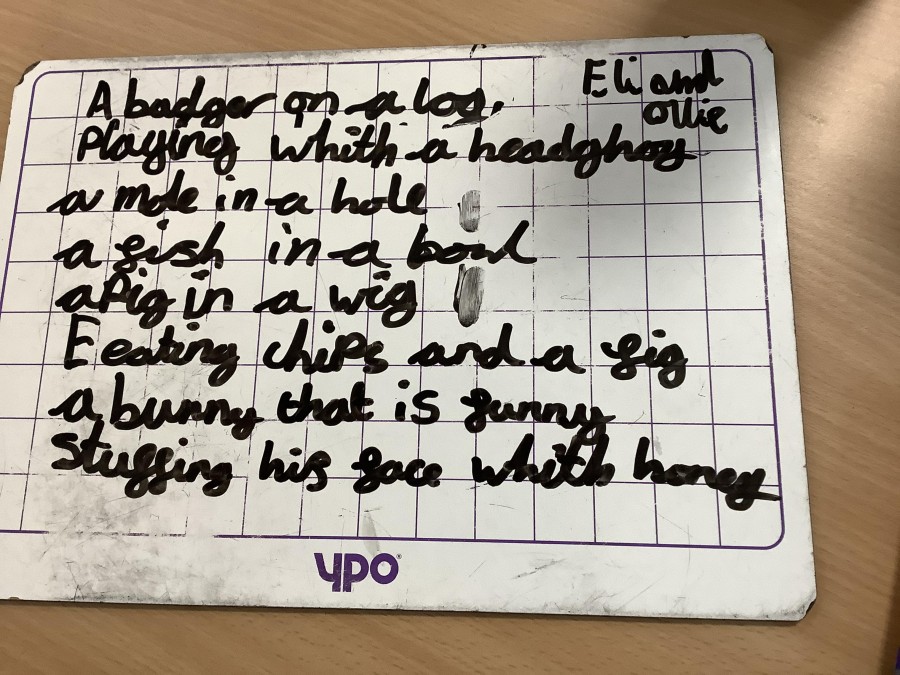 Eli and
Ollie
A badger on a log.
Playing whith a headghog
a mole in a hole
a fish in a bowl
a Pig in a wig
E eating chips and a fig
a bunny that is funny
stuffing his face whith honey
ypo